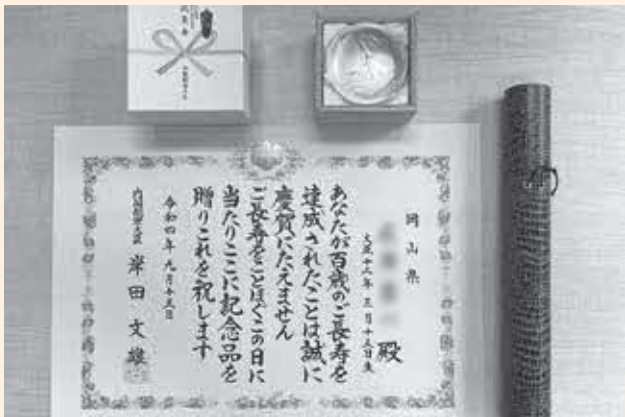 岡山県
殿
大正十二年三月十三日生
あなたが百歳のご長寿を
達成されたことは誠に
慶賀にたえません
ご長寿をことほぐこの日に
当たりここに記念品を
贈りこれを祝します
令和四年九月十五日
内閣総理大臣 岸田文雄